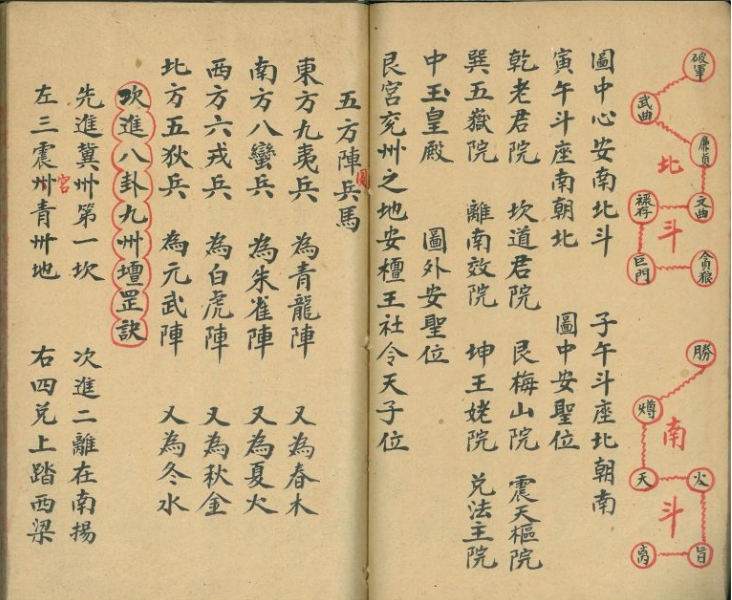 破軍
武曲
廉貞
北
祿存
文曲
斗
巨門
貪狼
勝
南
天
火
斗
圖中心安南北斗 子午斗座北朝南
寅午斗座南朝北 圖中安聖位
乾老君院 坎道君院 艮梅山院 震天樞院
巽五嶽院 離南效院 坤王姥院 兌法主院
中玉皇殿 圖外安聖位
艮宮兖州之地安檀王社令天子位
五方陣兵馬
圖
東方九夷兵 為青龍陣 又為春木
南方八蠻兵 為朱雀陣 又為夏火
西方六戎兵 為白虎陣 又為秋金
北方五狄兵 為元武陣 又為冬水
坎進八卦九州壇罡訣
先進冀州第一坎 次進二離在南揚
左三震宮州青州地 右四兌上踏西梁